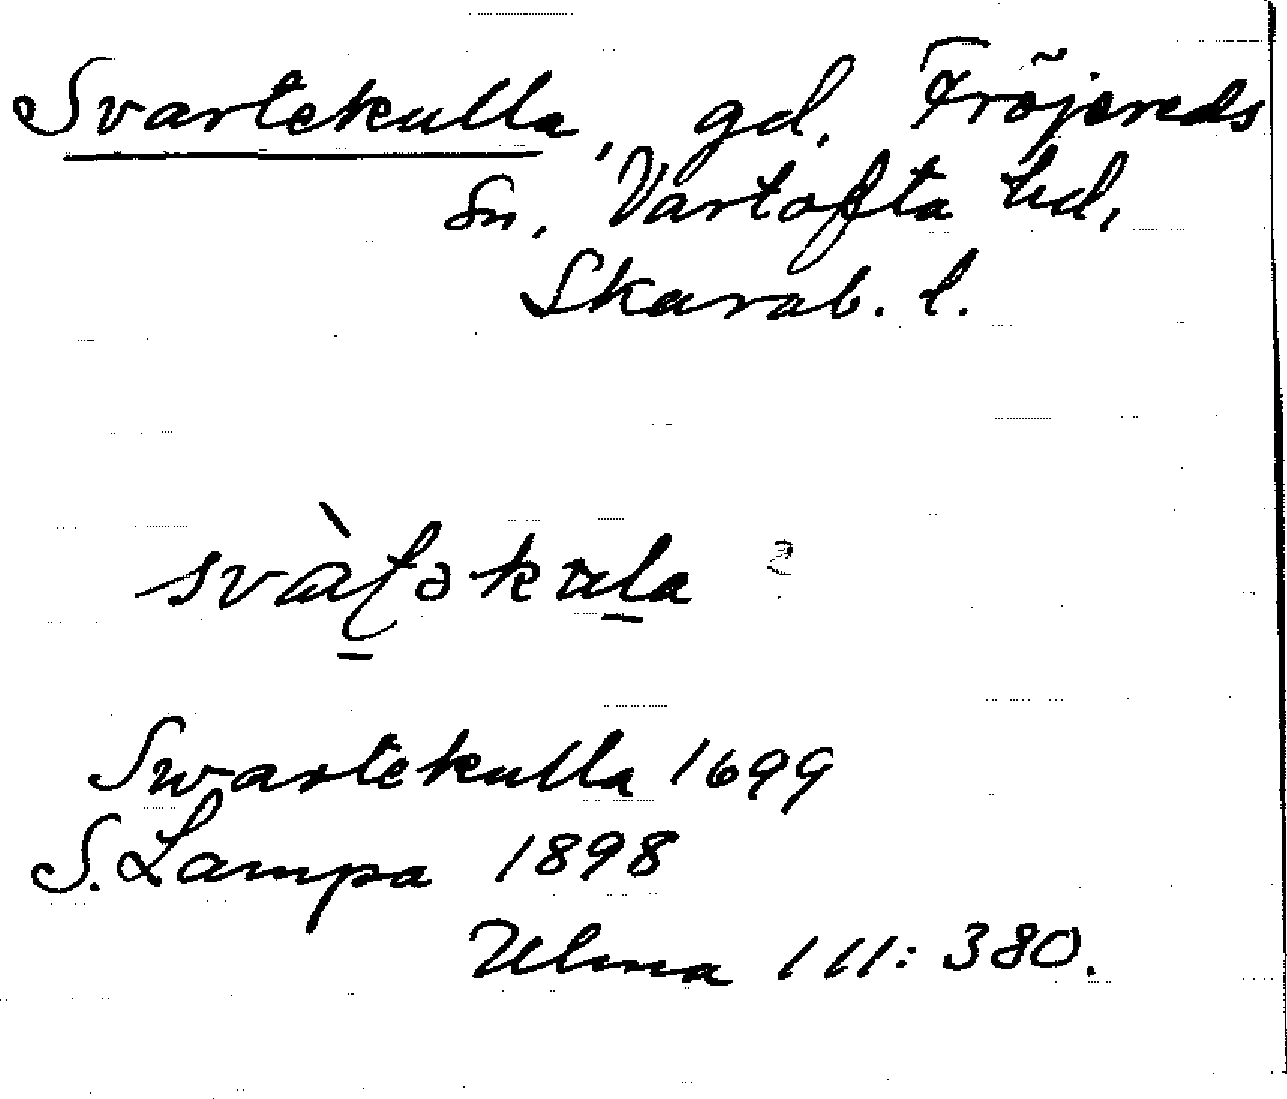 Svartekulla, gd. Fröjereds
sn, Vartofta hd,
Skarab. l.
svàʈəkula
Swartekulla 1699
S. Lampa 1898
Ulma 111: 380.